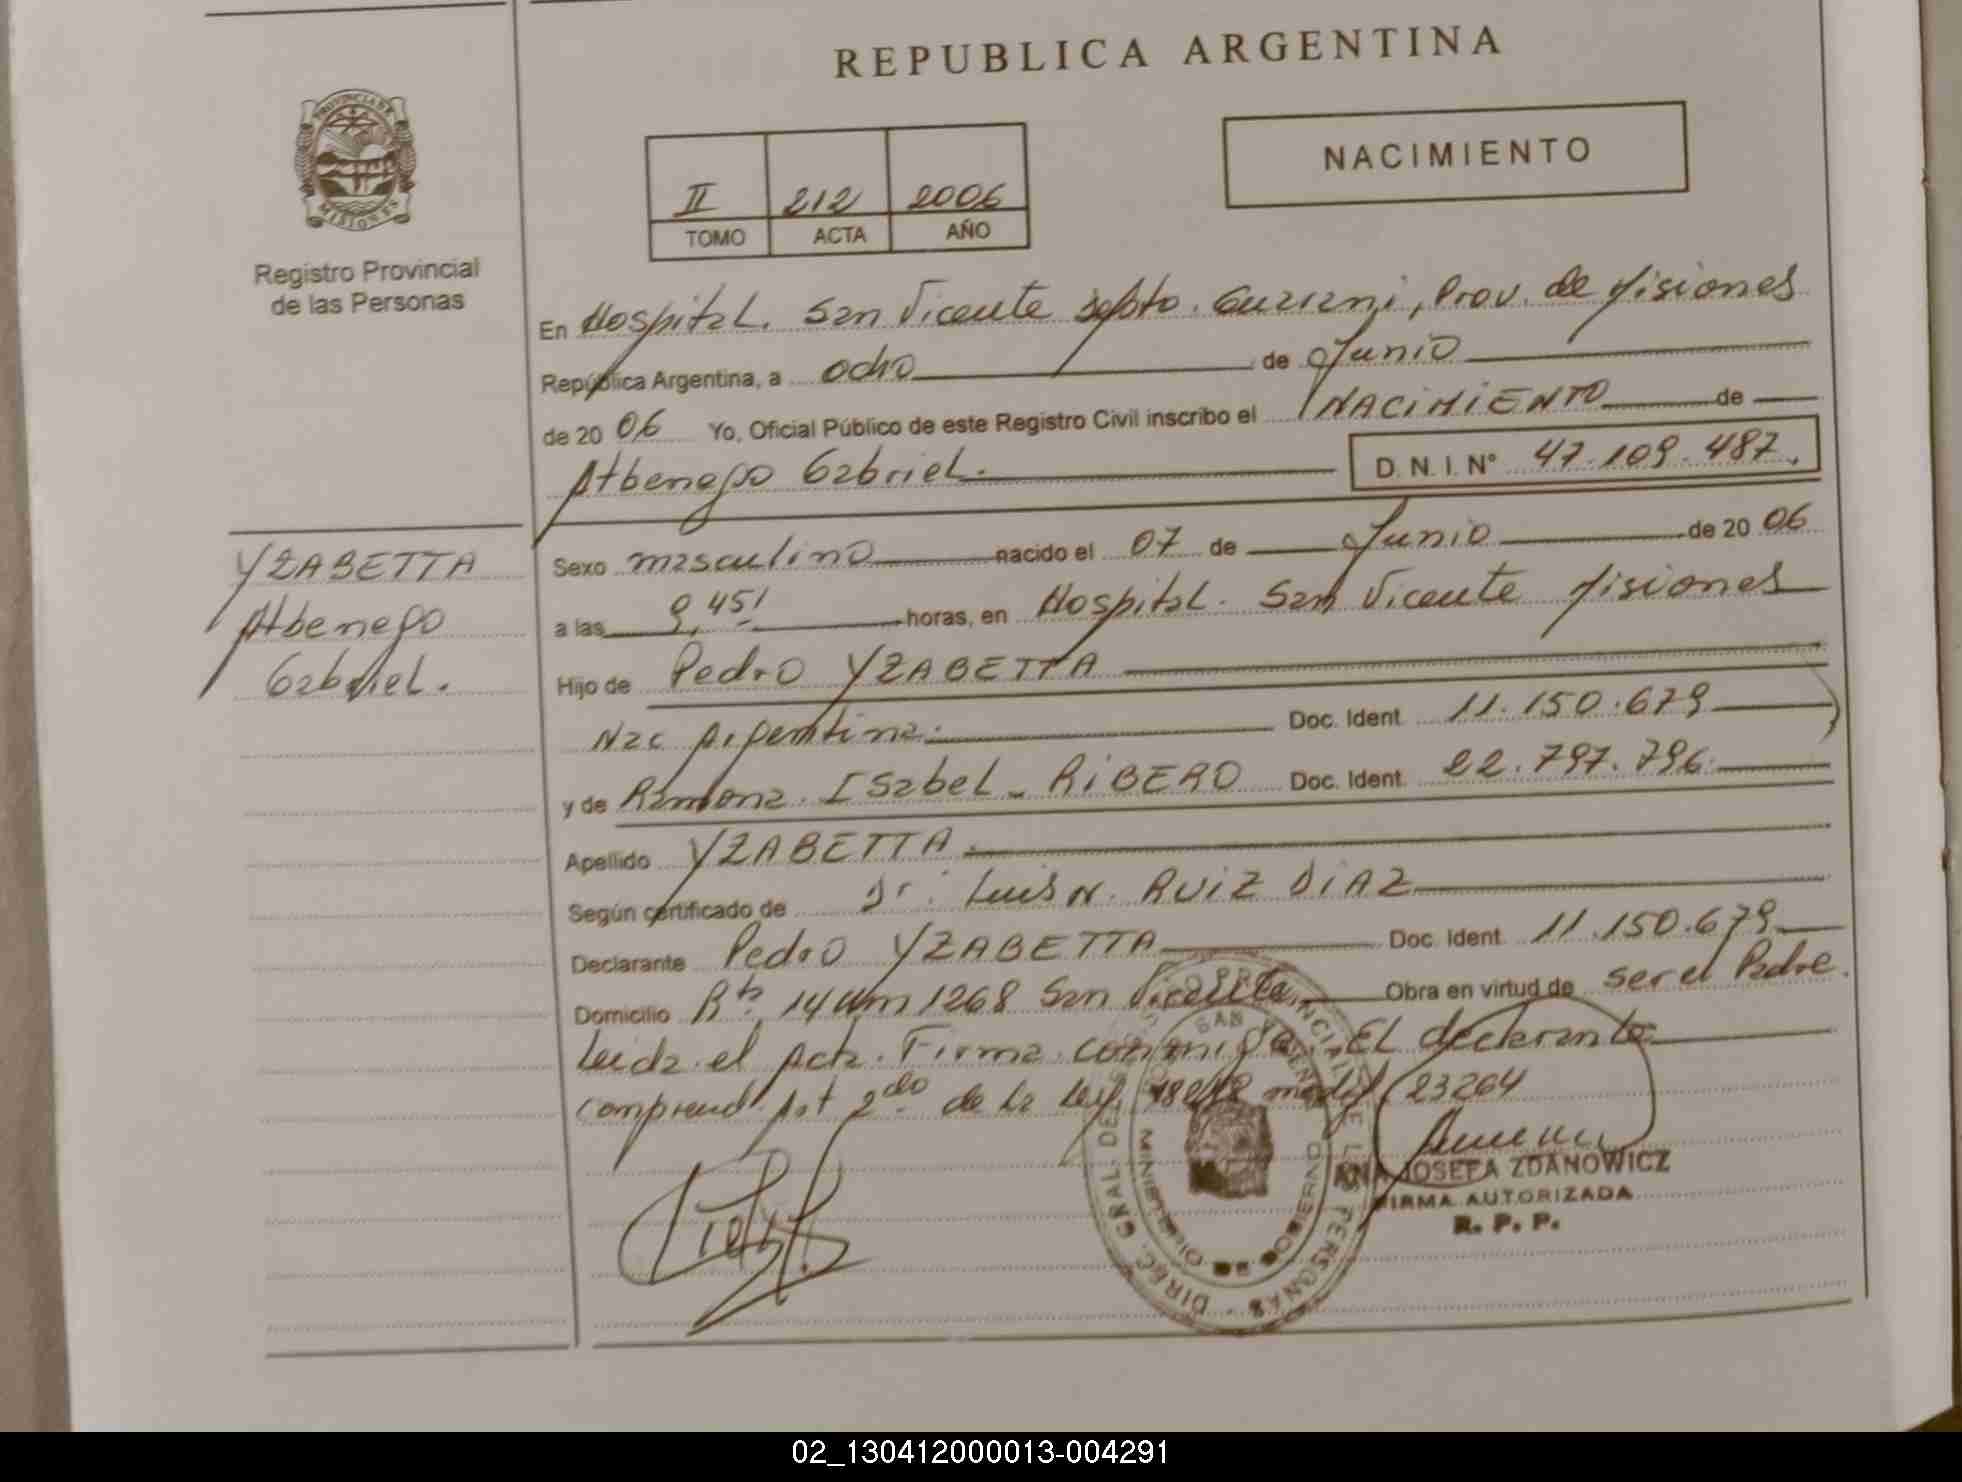 REPUBLICA ARGENTINA
PROVINCIA DE
MISIONES
Registro Provincial
de las Personas
NACIMIENTO
II 212 2006
TOMO ACTA AÑO
En Hospital. San Vicente Dpto. Guarani, Prov. de Misiones
República Argentina, a ocho de Junio
de 20 06 Yo, Oficial Público de este Registro Civil inscribo el NACIMIENTO de
Abenego Gabriel. D. N. I. N° 47.109.487.
YZABETTA
Abenego
Gabriel.
Sexo masculino nacido el 07 de Junio de 20 06
a las 9,45' horas, en Hospital. San Vicente Misiones
Hijo de Pedro YZABETTA
Nac Argentina. Doc. Ident. 11.150.679
y de Ramona Isabel RIBERO Doc. Ident. 22.797.796
Apellido YZABETTA.
Según certificado de Dr. Luis N. RUIZ DIAZ
Declarante Pedro YZABETTA Doc. Ident. 11.150.679
Domicilio Rta 14 Km 1268 San Vicente Obra en virtud de ser el Padre.
Leida el Acta. Firma conmigo. EL declarante
comprend. Art 2do de la Ley 18248 modif 23264
ANA JOSEFA ZDANOWICZ
FIRMA AUTORIZADA
R. P. P.
DIREC. GRAL. DEL REG. PROVINCIAL DE LAS PERSONAS
MINISTERIO DE GOBIERNO
SAN VICENTE
02_130412000013-004291